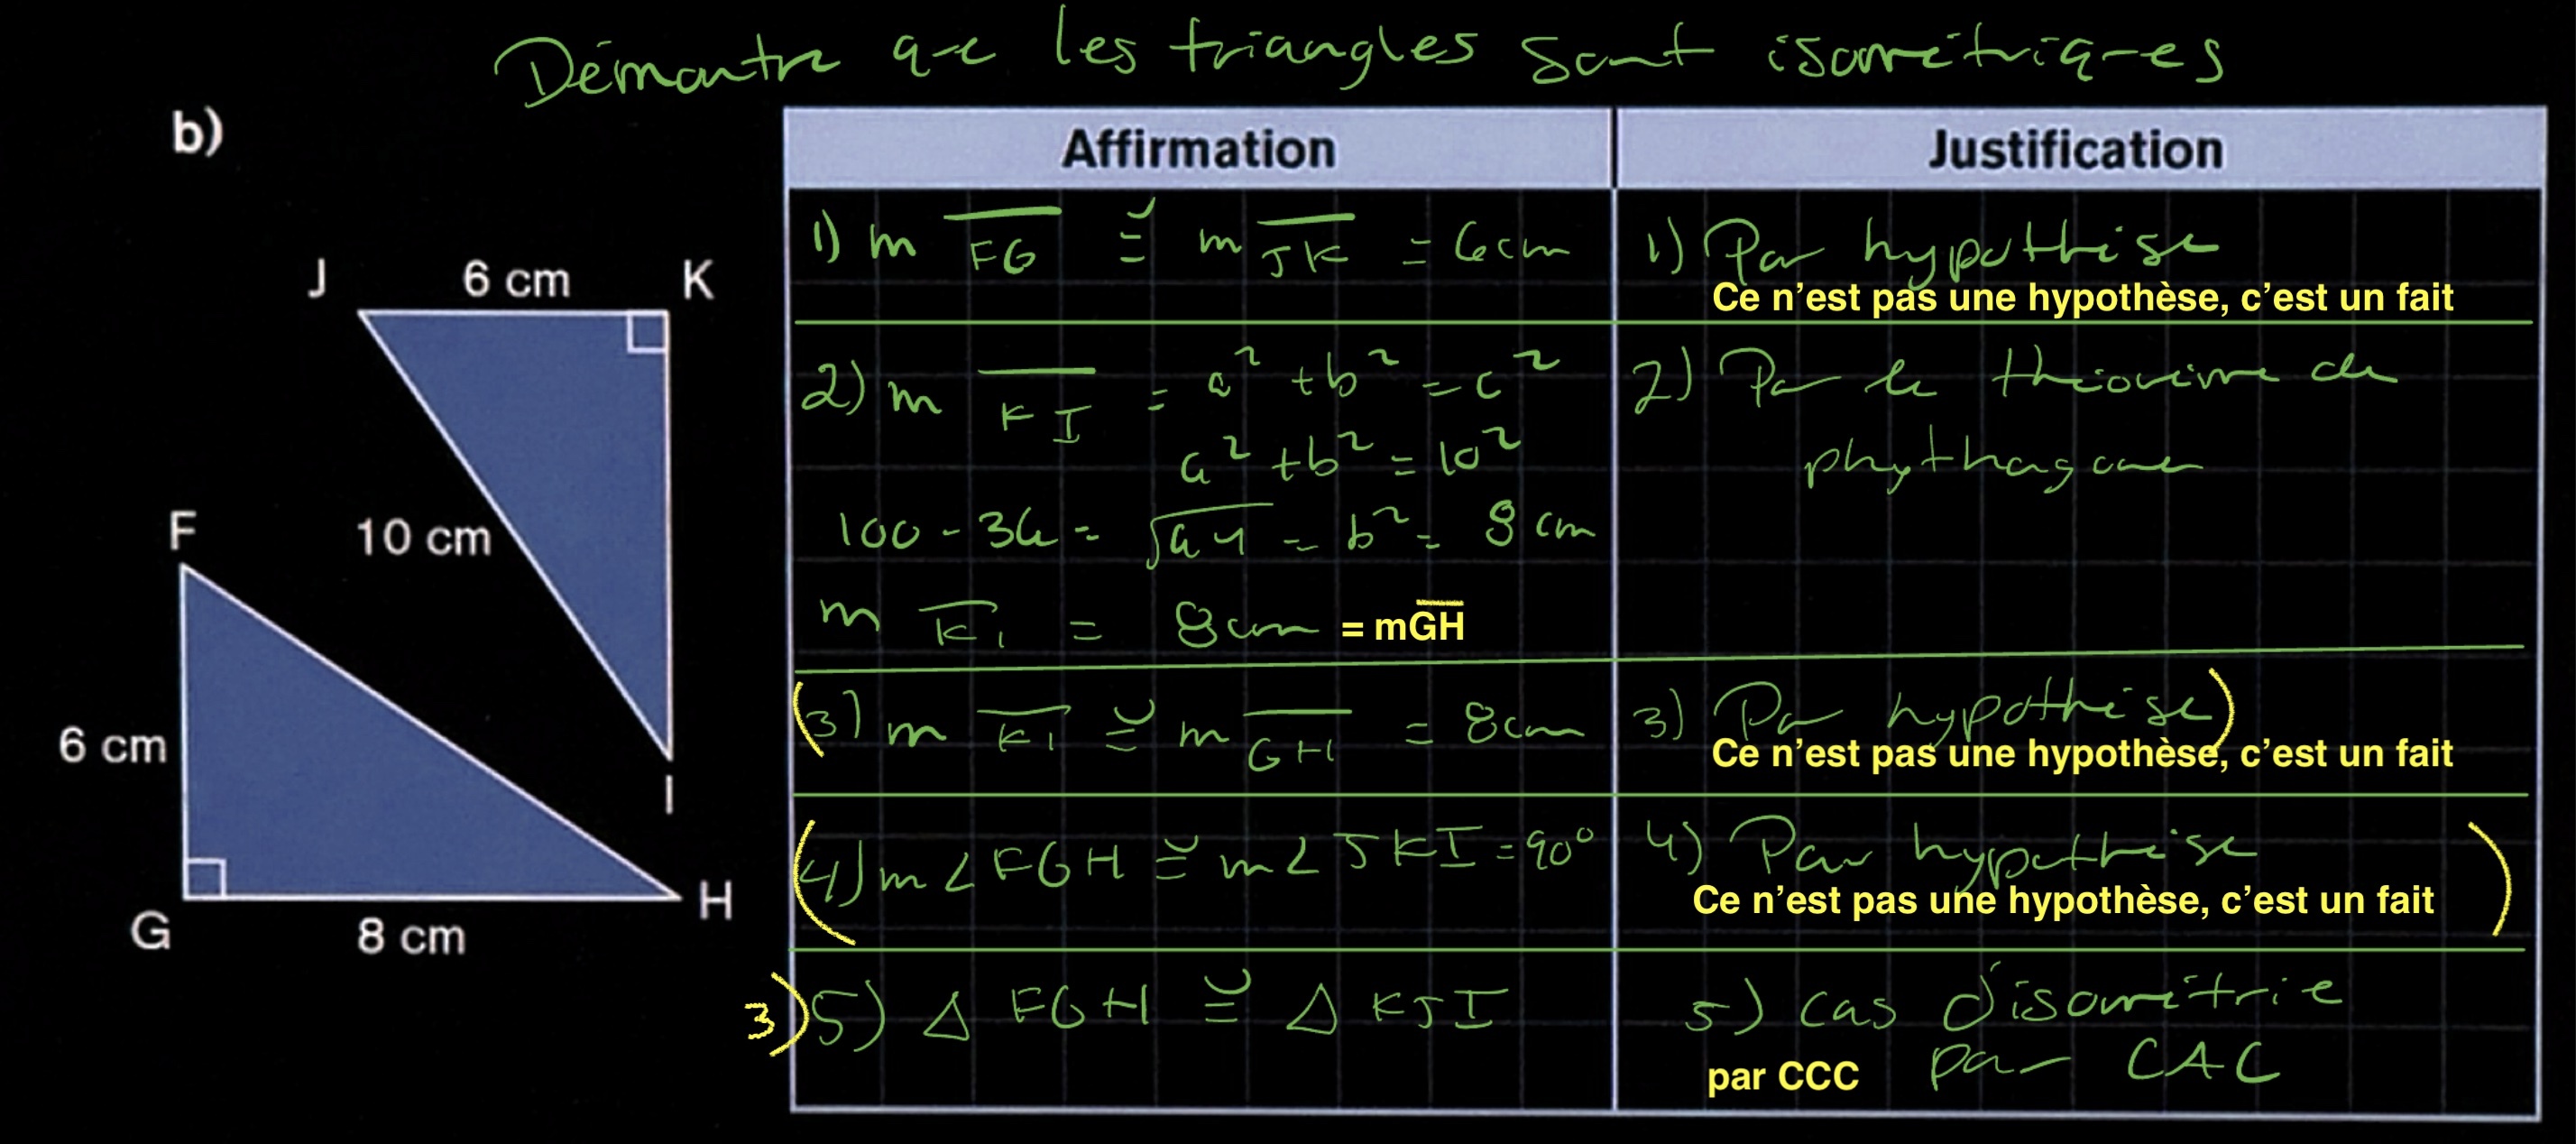 Démontre que les triangles sont isométriques
b)
Affirmation
Justification
J
6 cm
K
10 cm
I
F
6 cm
G
8 cm
H
1) m FG ≅ m JK = 6cm
1) Par hypothèse
Ce n'est pas une hypothèse, c'est un fait
2) m KI = a² + b² = c²
a² + b² = 10²
100 - 36 = √64 = b² = 8 cm
m KI = 8cm = mGH
2) Par le théorème de
phythagore
(3) m KI ≅ m GH = 8cm
3) Par hypothèse)
Ce n'est pas une hypothèse, c'est un fait
(4) m∠FGH ≅ m∠JKI = 90°
4) Par hypothèse )
Ce n'est pas une hypothèse, c'est un fait
3) 5) Δ FGH ≅ Δ KJI
5) cas d'isométrie
par CCC par CAC